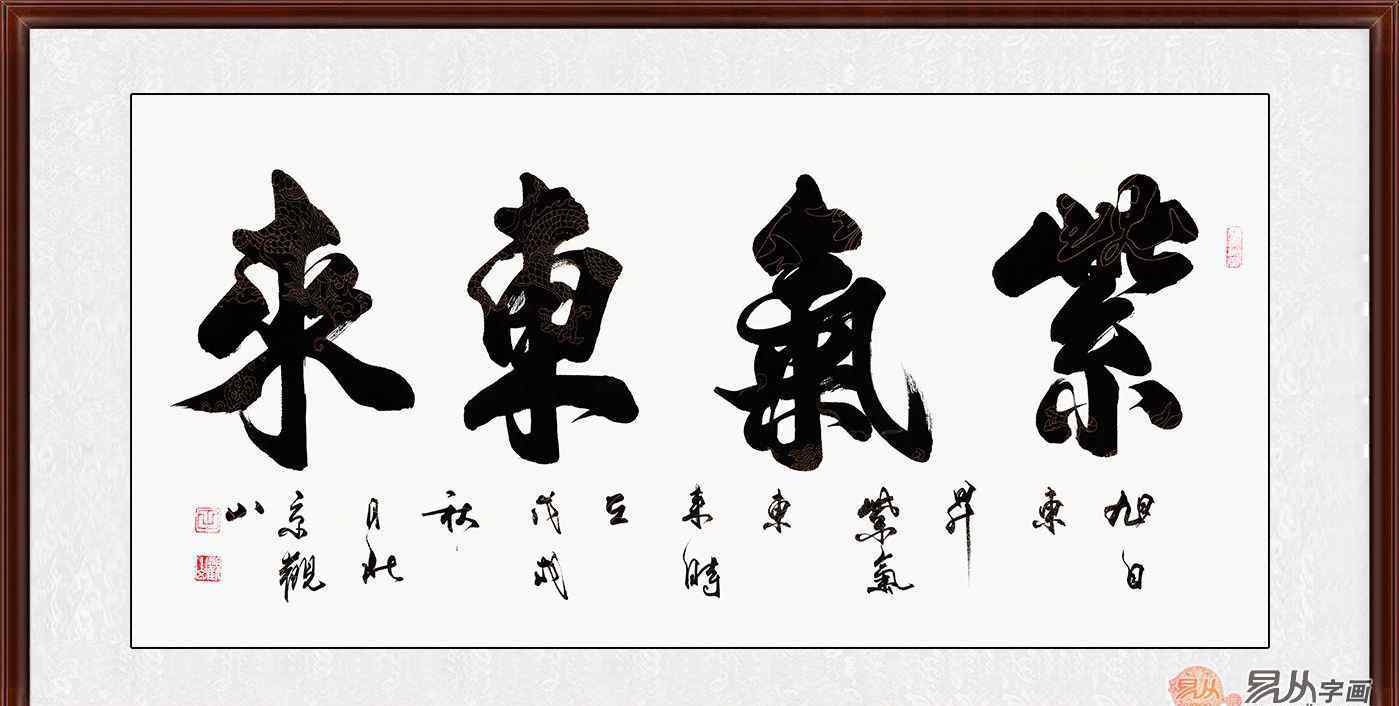 紫氣東來
旭日
東
昇
紫氣
東
来時
戊戌
秋
月於
京觀
山
易从字画